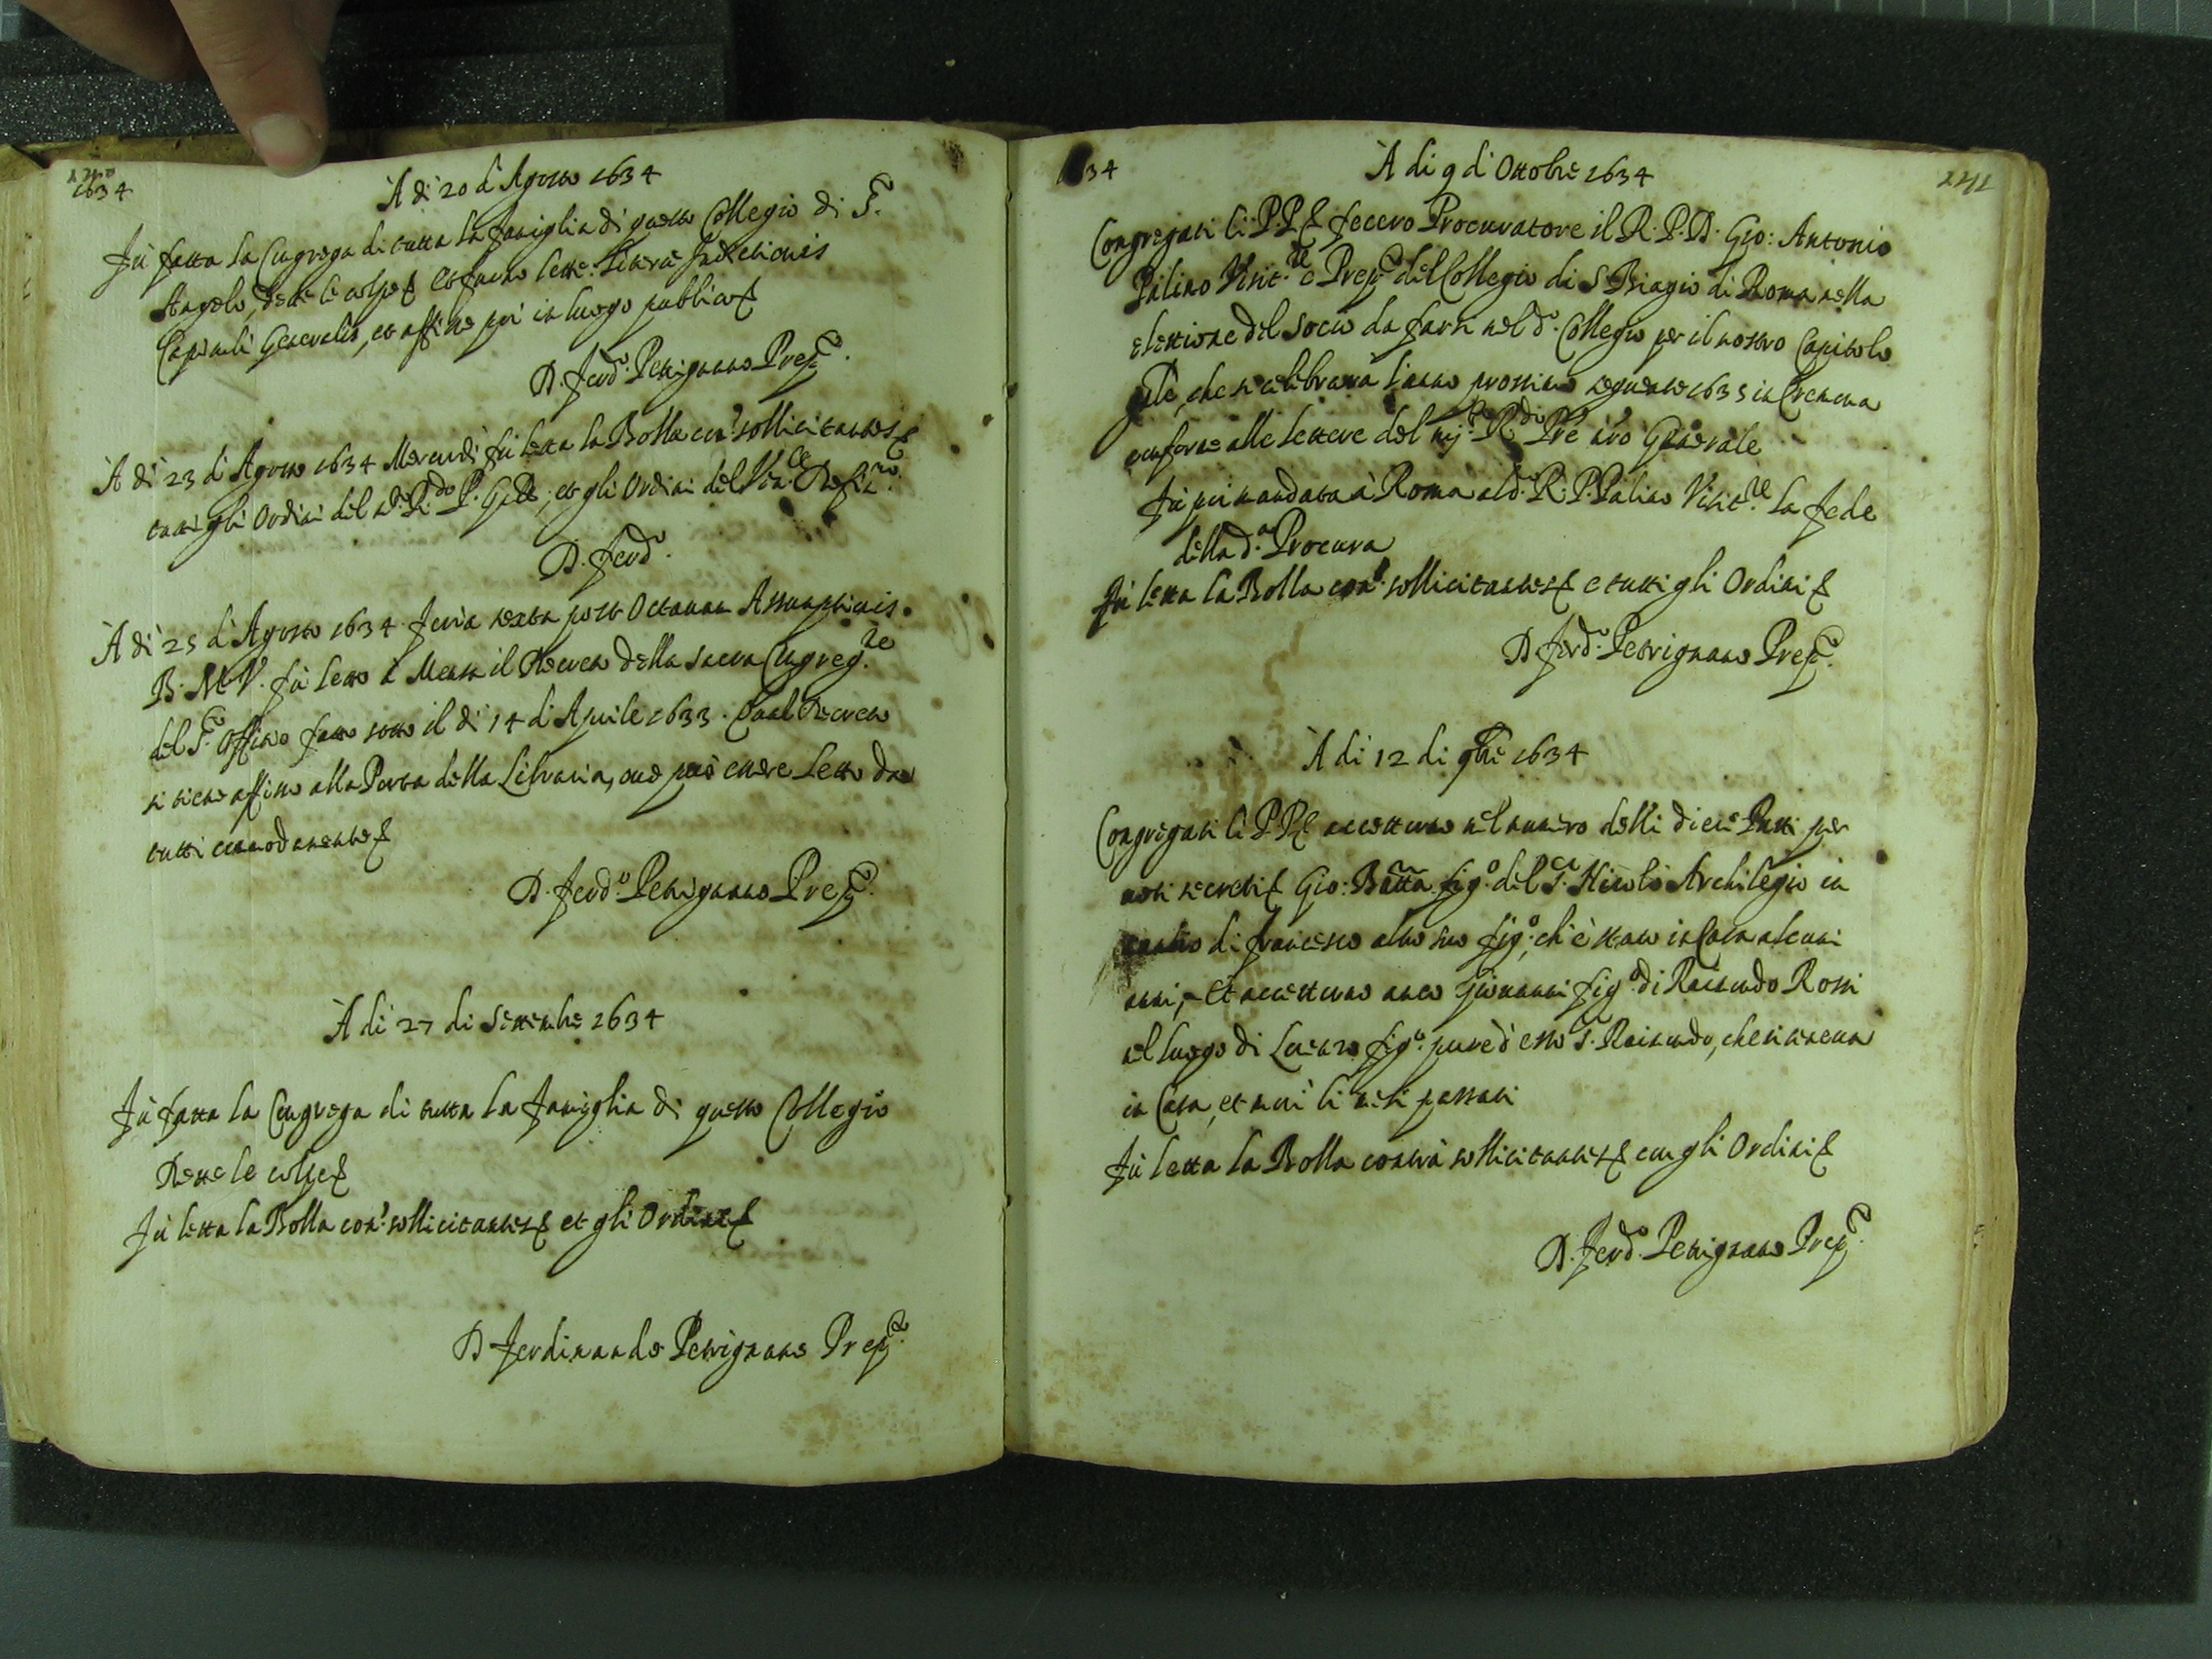 1634
A di 20 d'Agosto 1634
Fù fatta la Congrega di tutta la famiglia di questo Collegio di S.
Angelo, dette le colpe et furno lette: Literae Indictionis
Capituli Generalis, et affisse poi in luogo publico
D. Ferdo. Petrignano Prepto.
A di 23 d'Agosto 1634 Mercordì fù letta la Bolla con.a sollicitantes
tutti gli Ordini del m.o R.do P. Gñle, et gli Ordini del Ven.le Definro.
D. Ferdo.
A di 25 d'Agosto 1634 feria sexta post Octavam Assumptionis
B. M. V. fù letto à Mensa il Decreto della sacra Congreg.ne
del S.to Offitio fatto sotto il di 14 d'Aprile 1633. Qual Decreto
si tiene affisso alla Porta della Libraria, ove può essere letto da
tutti commodamente
D. Ferdo. Petrignano Prepto.
A di 27 di Settembre 1634
Fù fatta la Congrega di tutta la famiglia di questo Collegio
Dette le colpe
Fù letta la Bolla con.a sollicitantes et gli Ordini
D. Ferdinando Petrignano Prepto.
34
A di 9 d'Ottobre 1634
Congregati li P.P. fecero Procuratore il R. P. D. Gio: Antonio
Palino Visit.re e Prepto. del Collegio di S. Biagio di Roma nella
elettione del socio da farsi nel d.o Collegio per il nostro Capitolo
gñle, che si celebrarà l'anno prossimo seguente 1635 in Cremona
conforme alle lettere del m. R.do Pre nro Generale
Fù poi mandata à Roma al d.o R. P. Palino Visit.re la fede
della d.a Procura
Fù letta la Bolla con.a sollicitantes e tutti gli Ordini
D. Ferdo. Petrignano Prepto.
A di 12 di 9bre 1634
Congregati li P.P. accettorno nel numero delli dieci Putti per
voti secreti Gio: Batta fig.o del S.r Nicolò Archilegio in
cambio di Francesco altro suo fig.o, ch'è stato in Casa alcuni
anni, et accettorno anco Giovanni fig.o di Raimondo Rossi
nel luogo di Lorenzo fig.o pure d'esso S. Raimondo, che si teneva
in Casa, et morì li mesi passati
Fù letta la Bolla contra sollicitantes con gli Ordini
D. Ferdo. Petrignano Prepto.